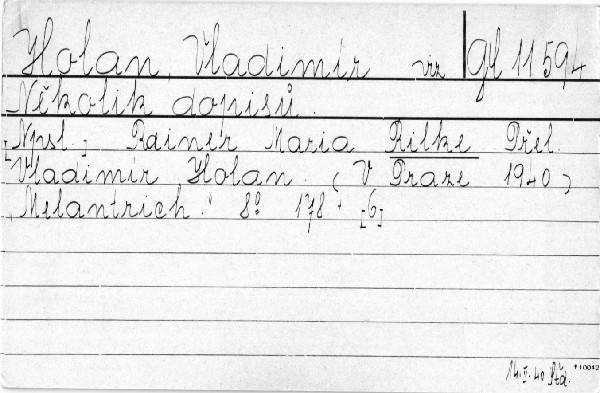 Holan, Vladimír viz Gl 11594
Několik dopisů.
[Npsl.] Rainer Maria Rilke Přel.
Vladimír Holan. (V Praze 1940)
„Melantrich.“ 8° 178 + [6]
14.II.40 Stá.